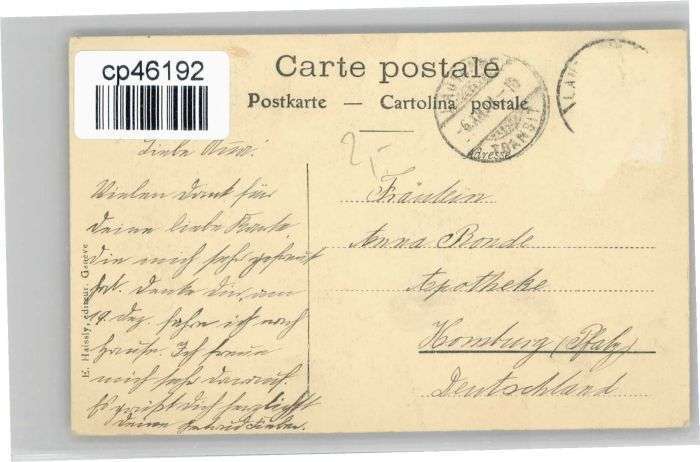 cp46192
Carte postale
Postkarte — Cartolina postale
LAUSANNE
TRANSIT
Adresse
LAU
2,-
Liebe
Vielen Dank für
Deine liebe Karte,
die mich sehr gefreut
hat. Denke Dir, am
19. Dez. fahre ich nach
Hause. Ich freue
mich sehr darauf.
Es grüßt Dich herzlichst
Deine
Fräulein
Anna Bonde
Apotheke
Homburg (Pfalz)
Deutschland
E. Haissly, éditeur, Genève